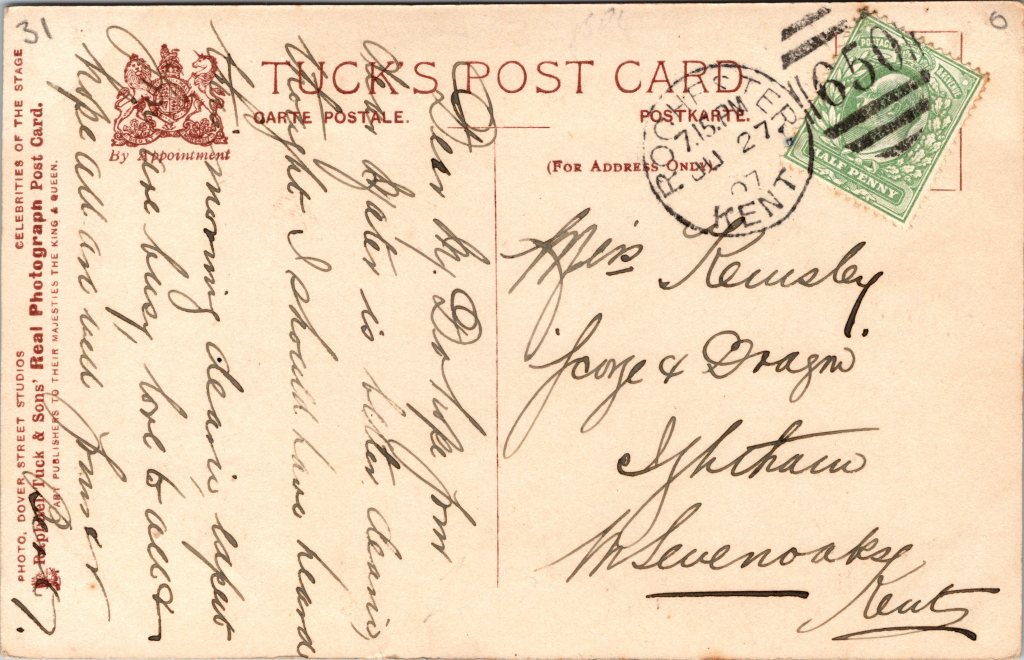 31
6
TUCK'S POST CARD
CARTE POSTALE.
POSTKARTE.
By Appointment
(FOR ADDRESS ONLY)
ROCHESTER
7.15 PM
JU 27
07
KENT
650
HALF PENNY
Miss Kemsley
"George & Dragon"
Ightham
Nr Sevenoaks
Kent
Dear
hope from
dear Mater is better clearie,
thought I should have heard
this morning clearie, expect
you are busy, love to all &
hope all are well from
CELEBRITIES OF THE STAGE
PHOTO, DOVER STREET STUDIOS
Raphael Tuck & Sons' Real Photograph Post Card.
ART PUBLISHERS TO THEIR MAJESTIES THE KING & QUEEN.